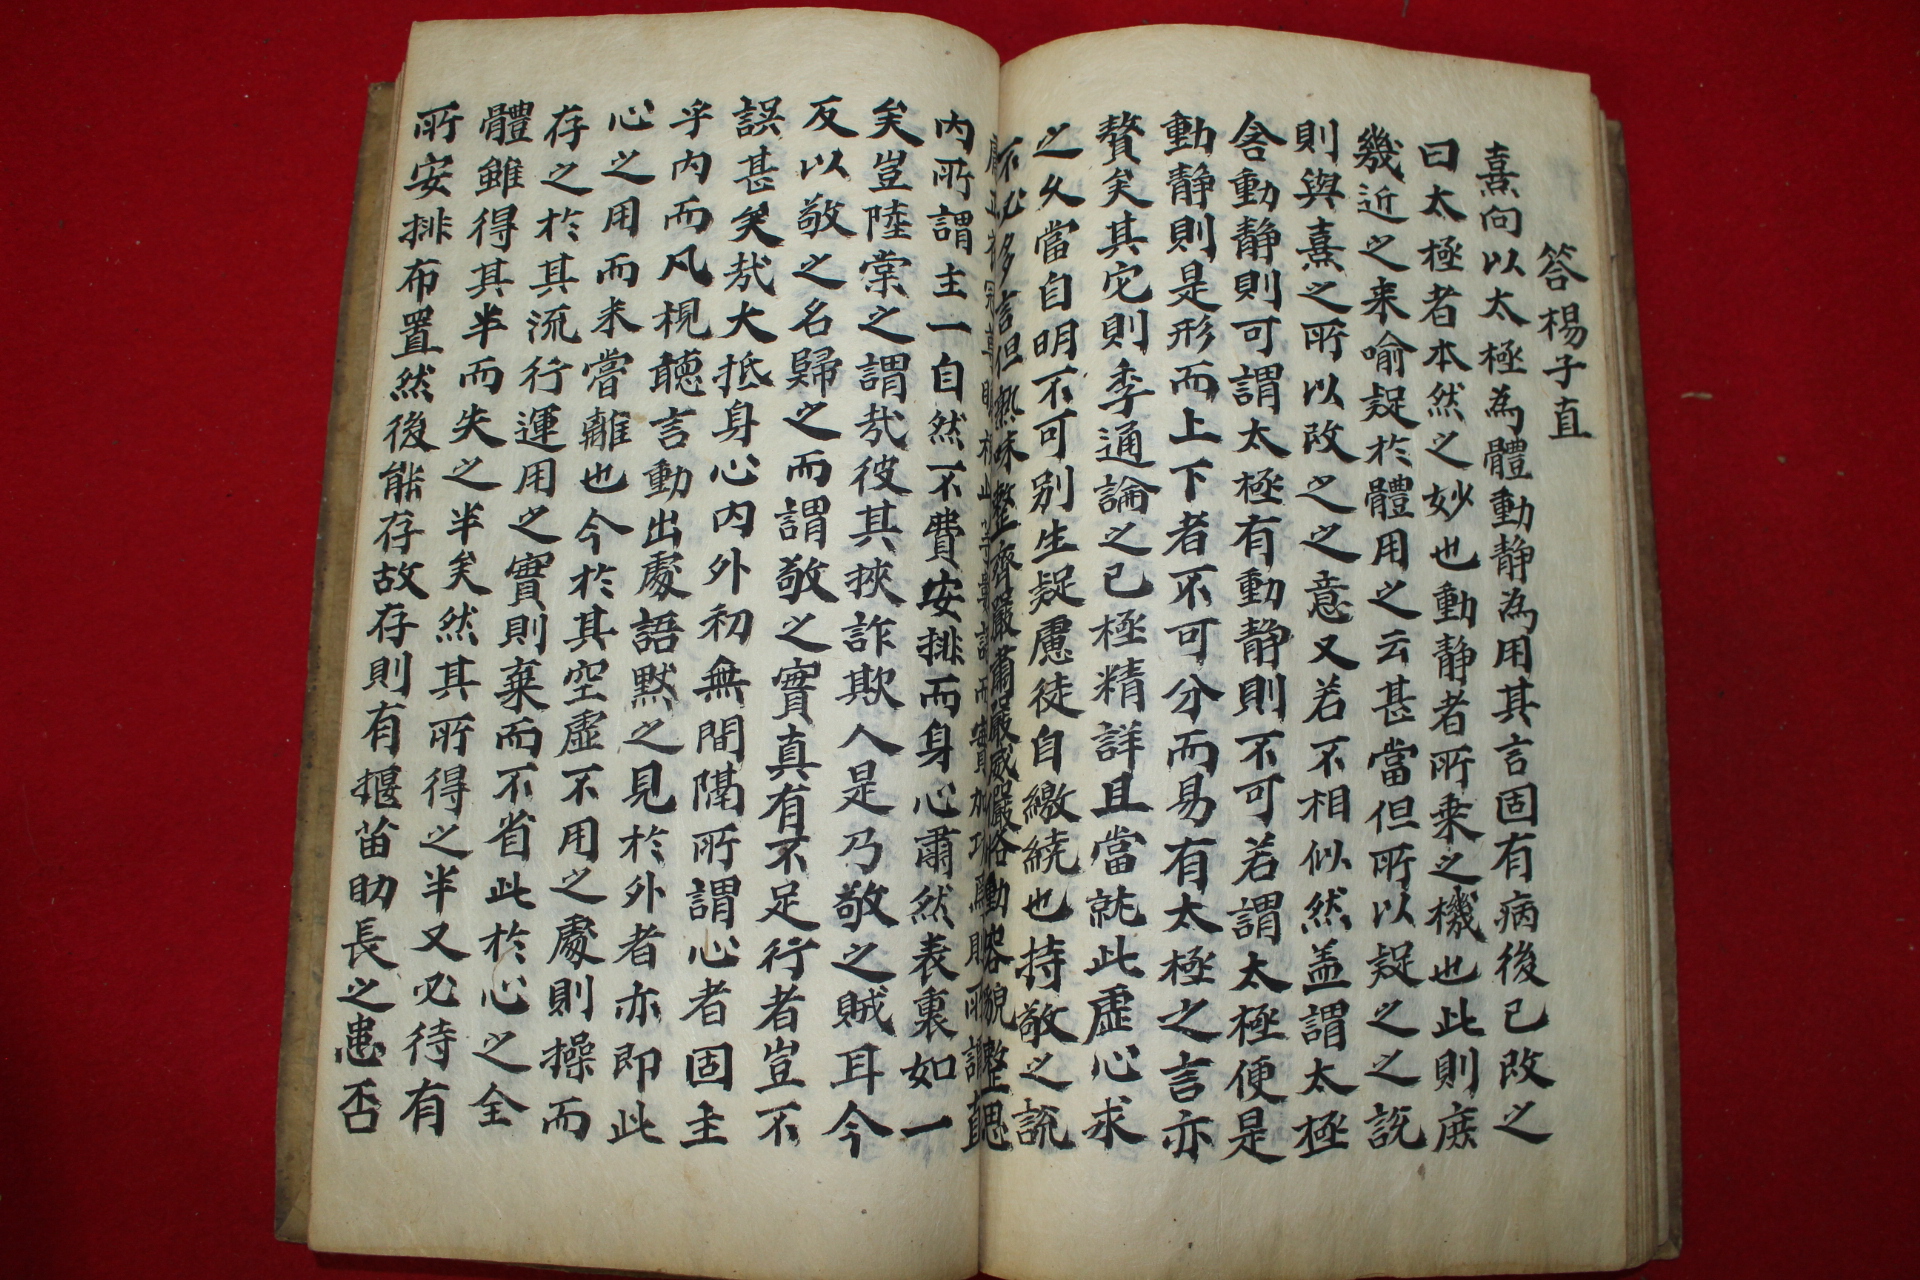 答楊子直
熹向以太極為體動靜為用其言固有病後已改之
曰太極者本然之妙也動靜者所乘之機也此則庶
幾近之来喻疑於體用之云甚當但所以疑之之說
則與熹之所以改之之意又若不相似然盖謂太極
含動靜則可謂太極有動靜則可若謂太極便是
動靜則是形而上下者不可分而易有太極之言亦
贅矣其它則季通論之已極精詳且當就此虛心求
之久當自明不可別生疑慮徒自繳繞也持敬之說
不必多言但熟味整齊嚴肅嚴威儼恪動容貌整思
慮正衣冠尊瞻視此等數語而實加功焉則所謂直
內所謂主一自然不費安排而身心肅然表裏如一
矣豈陸棠之謂㢤彼其挾詐欺人是乃敬之賊耳今
反以敬之名歸之而謂敬之實真有不足行者豈不
誤甚矣㢤大抵身心内外初無間隔所謂心者固主
乎内而凡視聽言動出處語默之見於外者亦即此
心之用而未嘗離也今於其空虛不用之處則操而
存之於其流行運用之實則棄而不省此於心之全
體雖得其半而失之半矣然其所得之半又必待有
所安排布置然後能存故存則有揠苗助長之患否